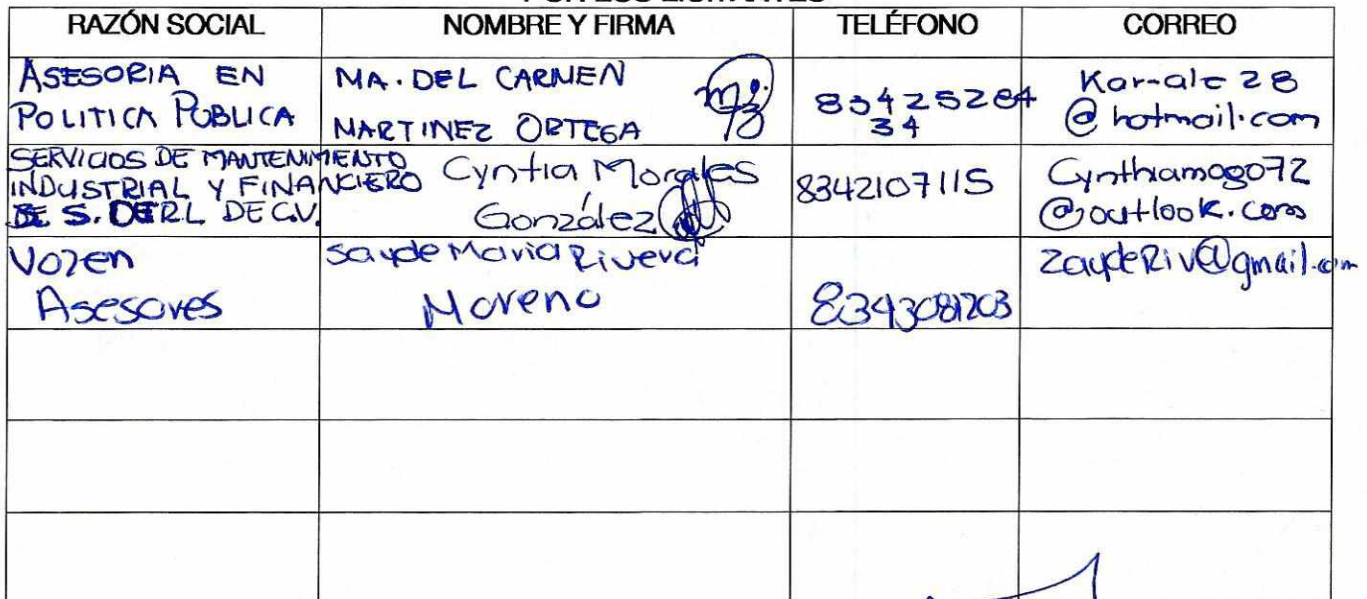 RAZÓN SOCIAL NOMBRE Y FIRMA TELÉFONO CORREO
ASESORIA EN
POLITICA PUBLICA
MA. DEL CARMEN
MARTINEZ ORTEGA
83425284
34
Kar-ale28
@hotmail.com
SERVICIOS DE MANTENIMIENTO
INDUSTRIAL Y FINANCIERO
DE S. DE R.L DE C.V.
Cyntia Morales
González
8342107115
Cynthiamogo72
@outlook.com
Vozen
Asesores
Sayde Maria Rivera
Moreno
8343081203
ZaydeRiv@gmail.com